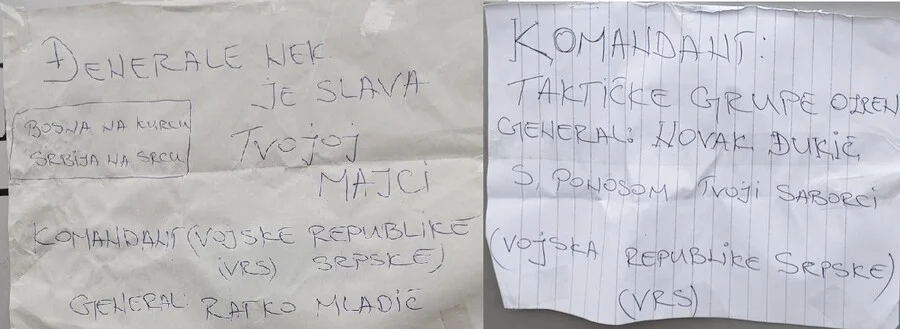 ĐENERALE NEK
JE SLAVA
TVOJOJ
MAJCI
BOSNA NA KURCU
SRBIJA NA SRCU
KOMANDANT (VOJSKE REPUBLIKE
(VRS) SRPSKE)
GENERAL: RATKO MLADIĆ
KOMANDANT:
TAKTIČKE GRUPE OZREN
GENERAL: NOVAK ĐUKIĆ
S, PONOSOM TVOJI SABORCI
(VOJSKA REPUBLIKE SRPSKE)
(VRS)